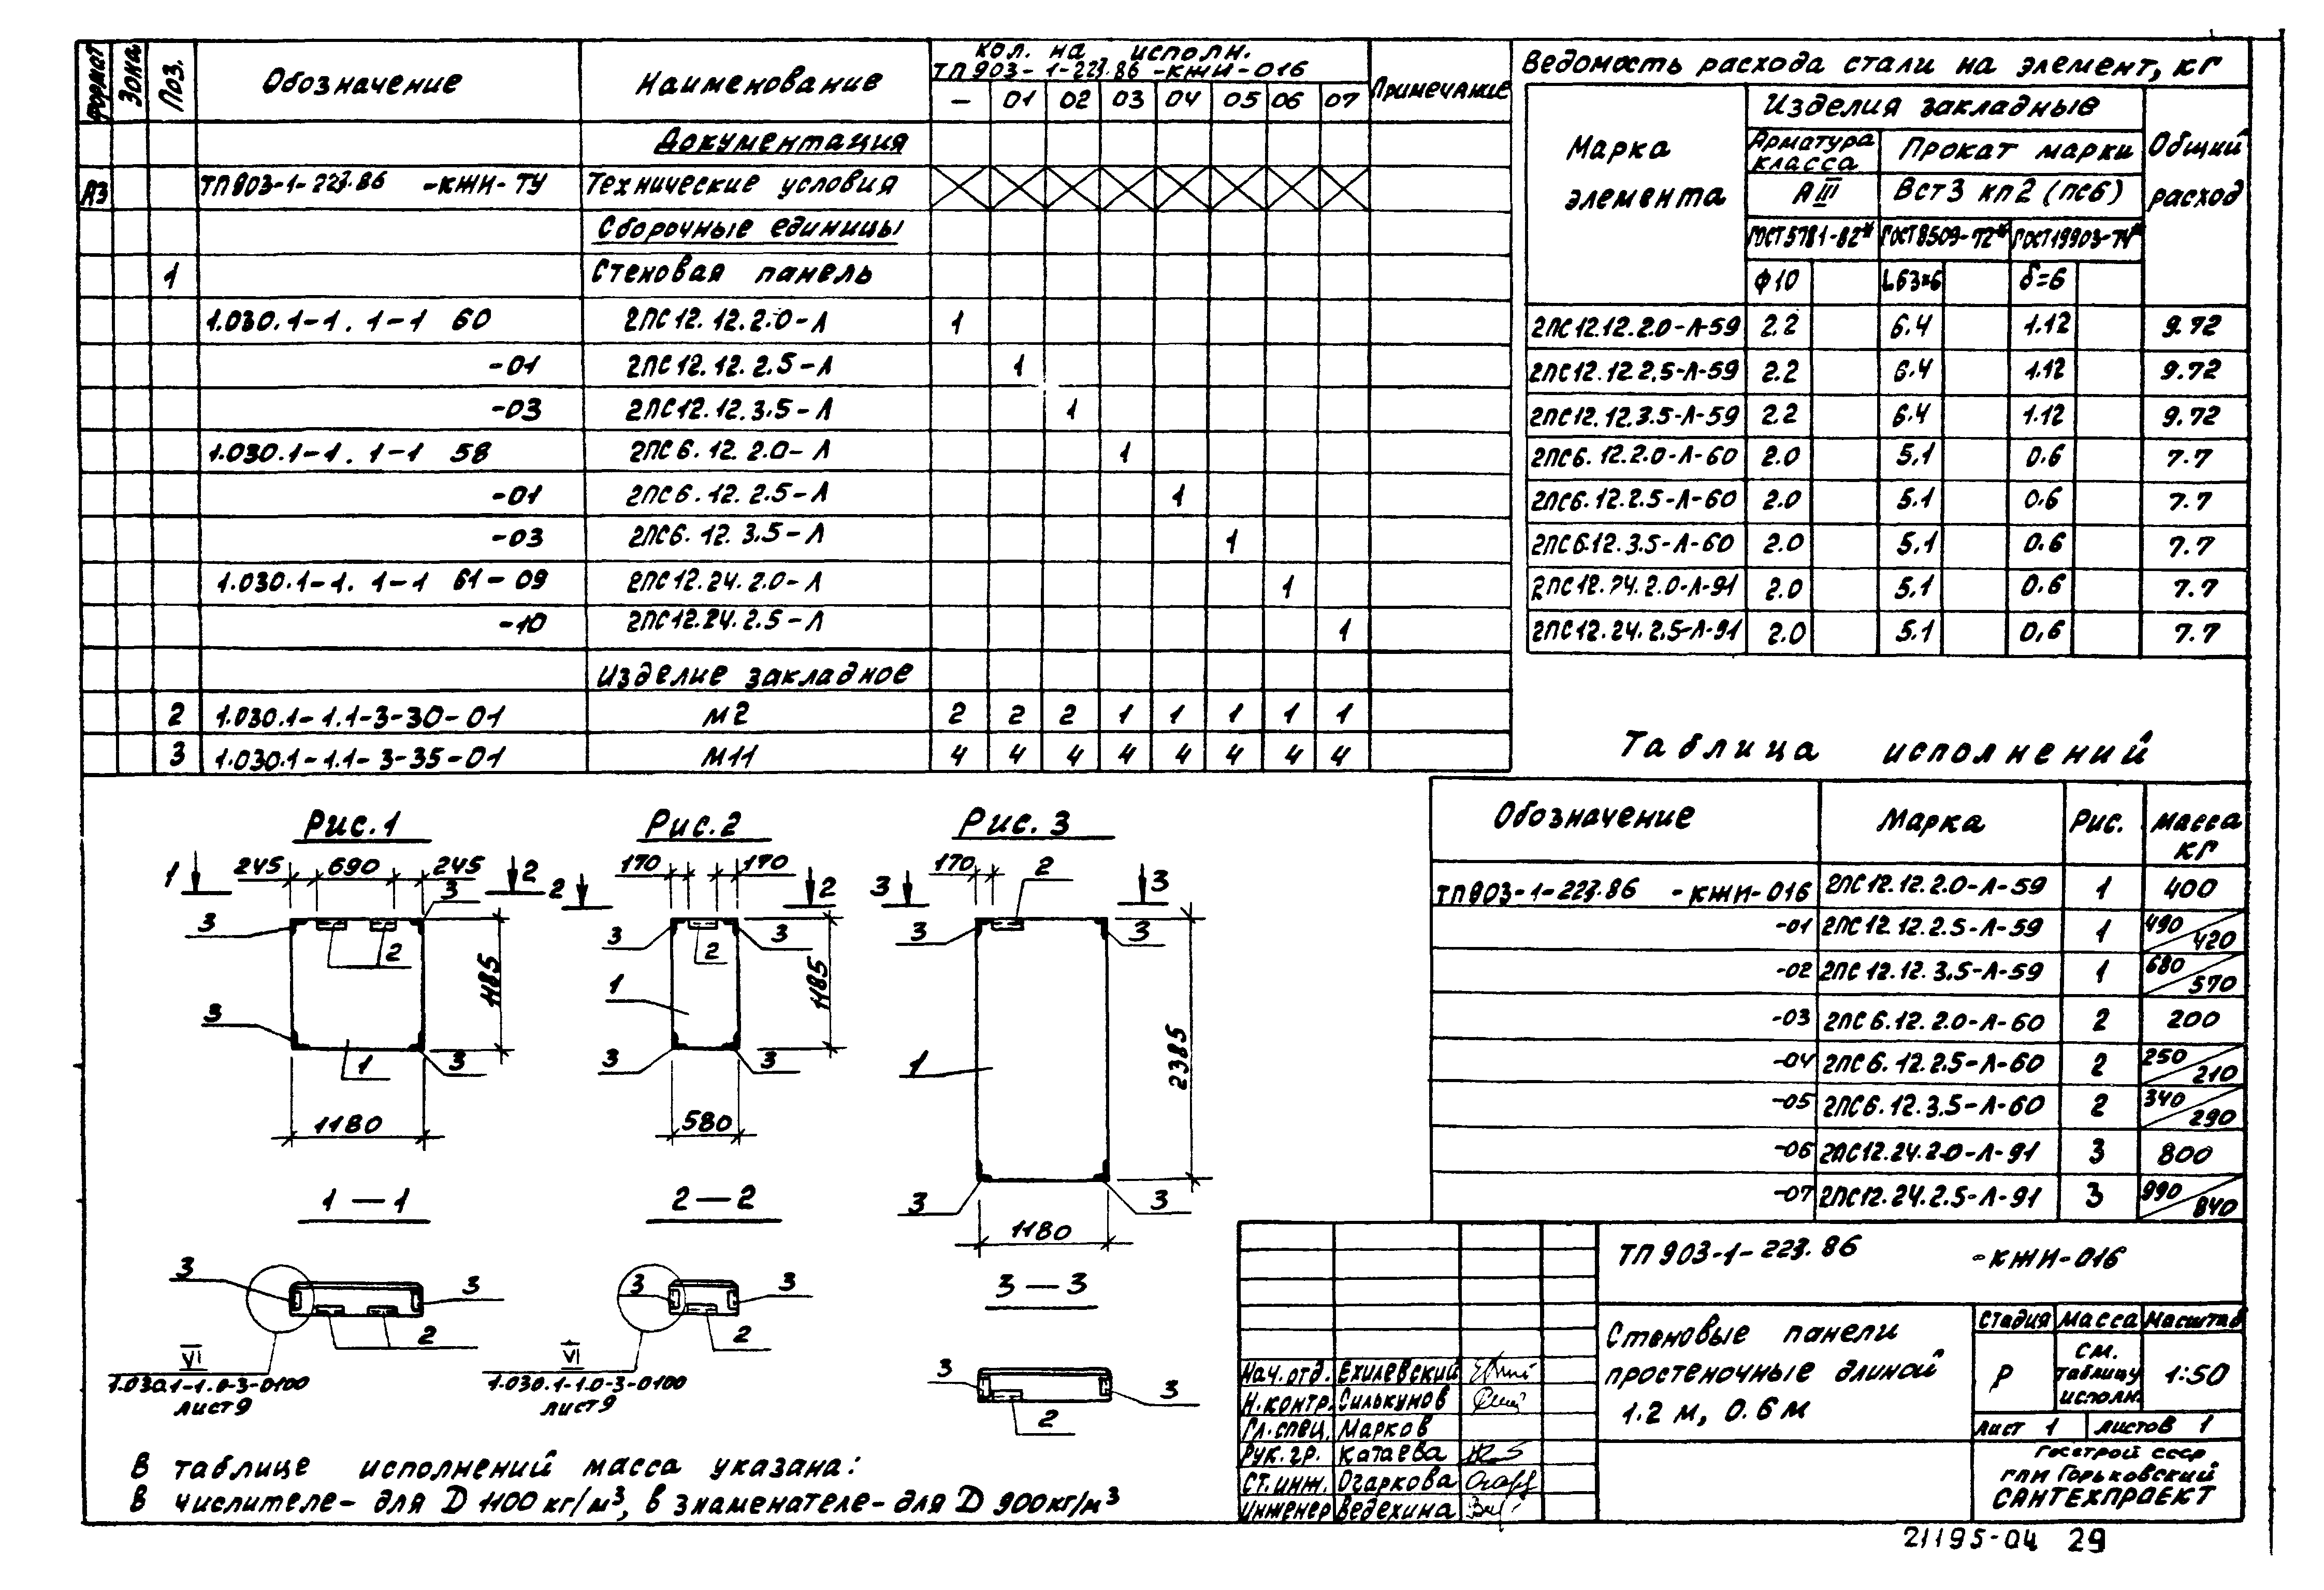 Формат Зона Поз. Обозначение Наименование кол. на исполн. Примечание
ТП 903-1-223.86 -КЖИ-016
– 01 02 03 04 05 06 07
Документация
А3 ТП 903-1-223.86 -КЖИ-ТУ Технические условия
Сборочные единицы
1 Стеновая панель
1.030.1-1. 1-1 60 2ПС 12.12.2.0-Л 1
-01 2ПС 12.12.2.5-Л 1
-03 2ПС12.12.3.5-Л 1
1.030.1-1. 1-1 58 2ПС 6.12.2.0-Л 1
-01 2ПС 6.12.2.5-Л 1
-03 2ПС6.12.3.5-Л 1
1.030.1-1. 1-1 61-09 2ПС12.24.2.0-Л 1
-10 2ПС12.24.2.5-Л 1
Изделие закладное
2 1.030.1-1.1-3-30-01 М2 2 2 2 1 1 1 1 1
3 1.030.1-1.1-3-35-01 М11 4 4 4 4 4 4 4 4
Ведомость расхода стали на элемент, кг
Марка элемента Изделия закладные Общий расход
Арматура класса Прокат марки
А III Вст3 кп2 (пс6)
ГОСТ5781-82* ГОСТ8509-72* ГОСТ19903-74*
ф10 L63×6 δ=6
2ПС12.12.2.0-Л-59 2.2 6.4 1.12 9.72
2ПС12.12.2.5-Л-59 2.2 6.4 1.12 9.72
2ПС12.12.3.5-Л-59 2.2 6.4 1.12 9.72
2ПС6.12.2.0-Л-60 2.0 5.1 0.6 7.7
2ПС6.12.2.5-Л-60 2.0 5.1 0.6 7.7
2ПС6.12.3.5-Л-60 2.0 5.1 0.6 7.7
2ПС12.24.2.0-Л-91 2.0 5.1 0.6 7.7
2ПС12.24.2.5-Л-91 2.0 5.1 0.6 7.7
Таблица исполнений
Обозначение Марка Рис. Масса кг
ТП903-1-223.86 -КЖИ-016 2ПС12.12.2.0-Л-59 1 400
-01 2ПС12.12.2.5-Л-59 1 490/420
-02 2ПС12.12.3.5-Л-59 1 680/570
-03 2ПС6.12.2.0-Л-60 2 200
-04 2ПС6.12.2.5-Л-60 2 250/210
-05 2ПС6.12.3.5-Л-60 2 340/290
-06 2ПС12.24.2.0-Л-91 3 800
-07 2ПС12.24.2.5-Л-91 3 990/840
Рис.1
1 245 690 245 2
3 3
2
1185
3 1 3
1180
Рис.2
2 170 170 2
3 3
2
1
1185
3 3
580
Рис. 3
3 170 2 3
3 3
1
2385
3 3
1180
1 — 1
3 3
2
VI
1.030.1-1.0-3-0100
лист 9
2 — 2
3 3
2
VI
1.030.1-1.0-3-0100
лист 9
3 — 3
3 3
2
В таблице исполнений масса указана:
В числителе- для D 1100 кг/м³, в знаменателе- для D 900кг/м³
ТП 903-1-223.86 -КЖИ-016
Стеновые панели
простеночные длиной
1.2 м, 0.6 м
Стадия Масса Масштаб
Р см. таблицу исполн. 1:50
Лист 1 Листов 1
Нач.отд. Ехилевский
Н.контр. Силькунов
Гл.спец. Марков
Рук.гр. Катаева
Ст.инж. Огаркова
Инженер Ведехина
Госстрой СССР
ГПИ Горьковский
САНТЕХПРОЕКТ
21195-04 29